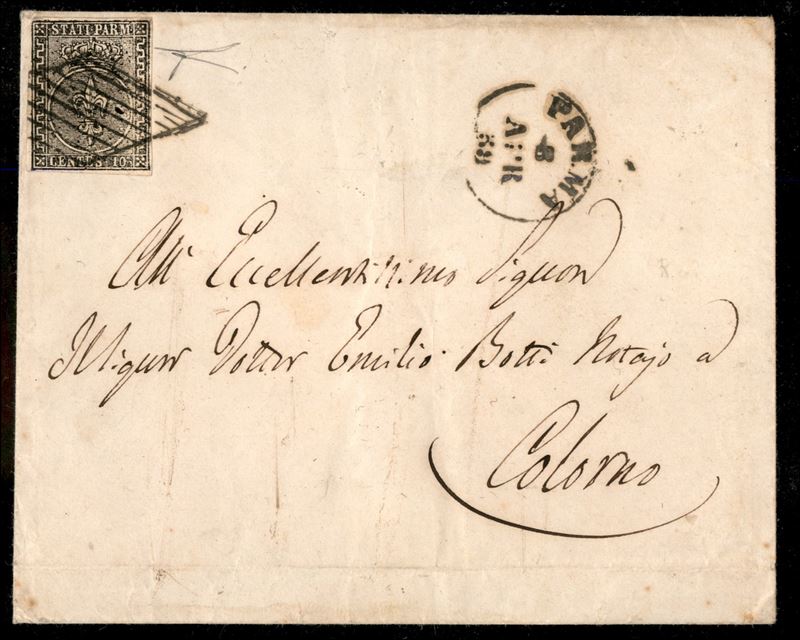 STATI PARM.
CENTES. 10
PARMA
8
APR
All' Eccellentissimo Signor
Dotter Emilio Botti Notajo a
Colorno